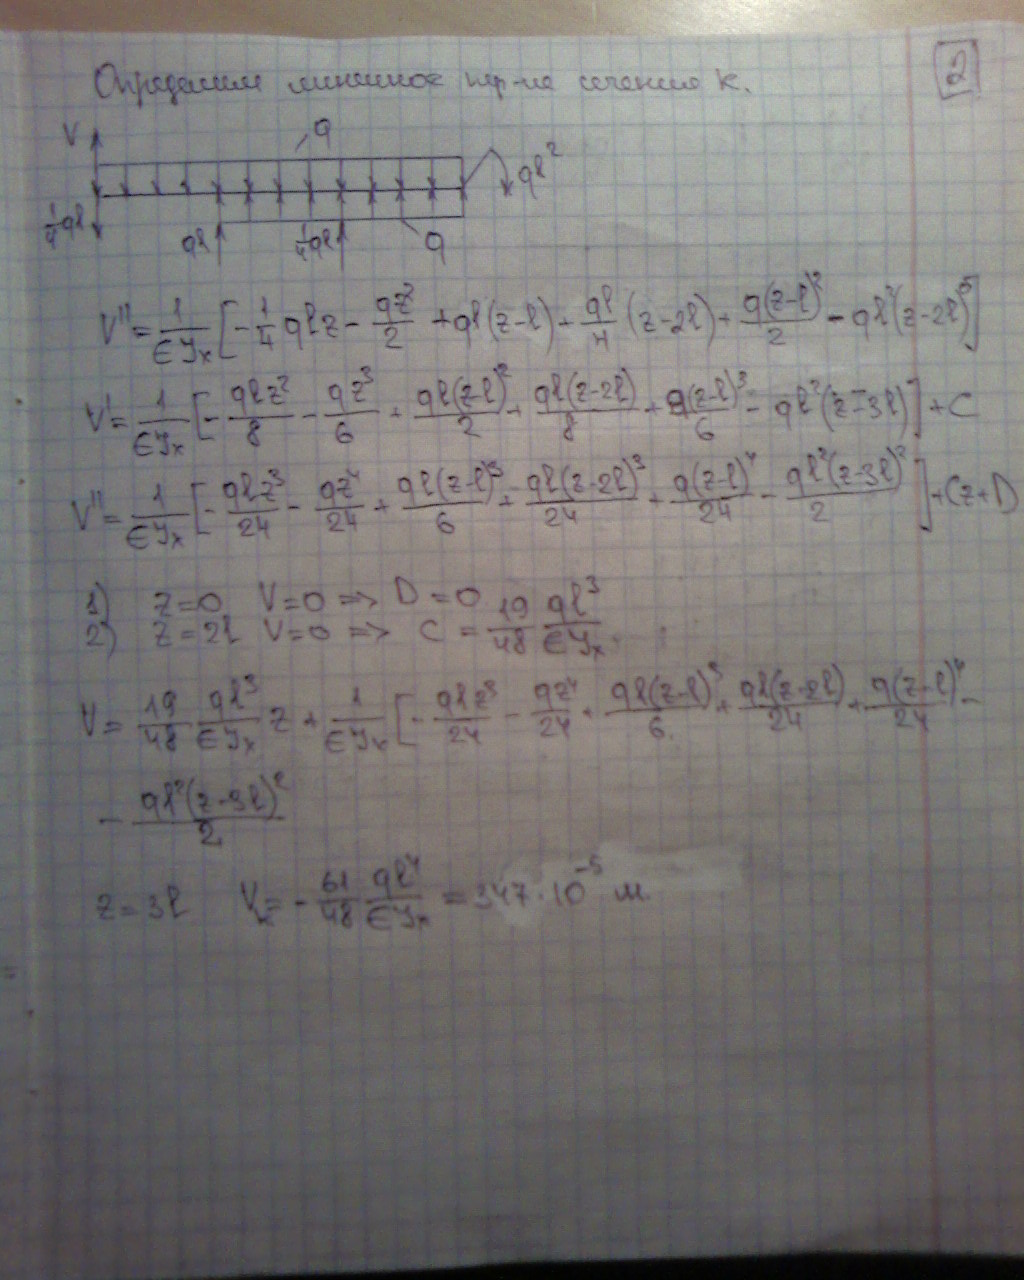 Определим линейное пер-ие сечения К.
2
V
q
ql²
1/4 ql
ql
1/4 ql
q
V'' = 1/EJx [ - 1/4 qlz - qz²/2 + ql(z-l) + ql/4 (z-2l) + q(z-l)²/2 - ql²(z-2l)⁰ ]
V' = 1/EJx [ - qlz²/8 - qz³/6 + ql(z-l)²/2 + ql(z-2l)/8 + q(z-l)³/6 - ql²(z-3l) ] + C
V'' = 1/EJx [ - qlz³/24 - qz⁴/24 + ql(z-l)³/6 + ql(z-2l)³/24 + q(z-l)⁴/24 - ql²(z-3l)²/2 ] + Cz + D
1) z=0 V=0 => D=0
2) z=2l V=0 => C = 19/48 ql³/EJx.
V = 19/48 ql³/EJx z + 1/EJx [ - qlz³/24 - qz⁴/24 + ql(z-l)³/6 + ql(z-2l)/24 + q(z-l)⁴/24 -
- ql²(z-3l)²/2
z = 3l Vк = - 61/48 ql⁴/EJx = 347·10⁻⁵ м.